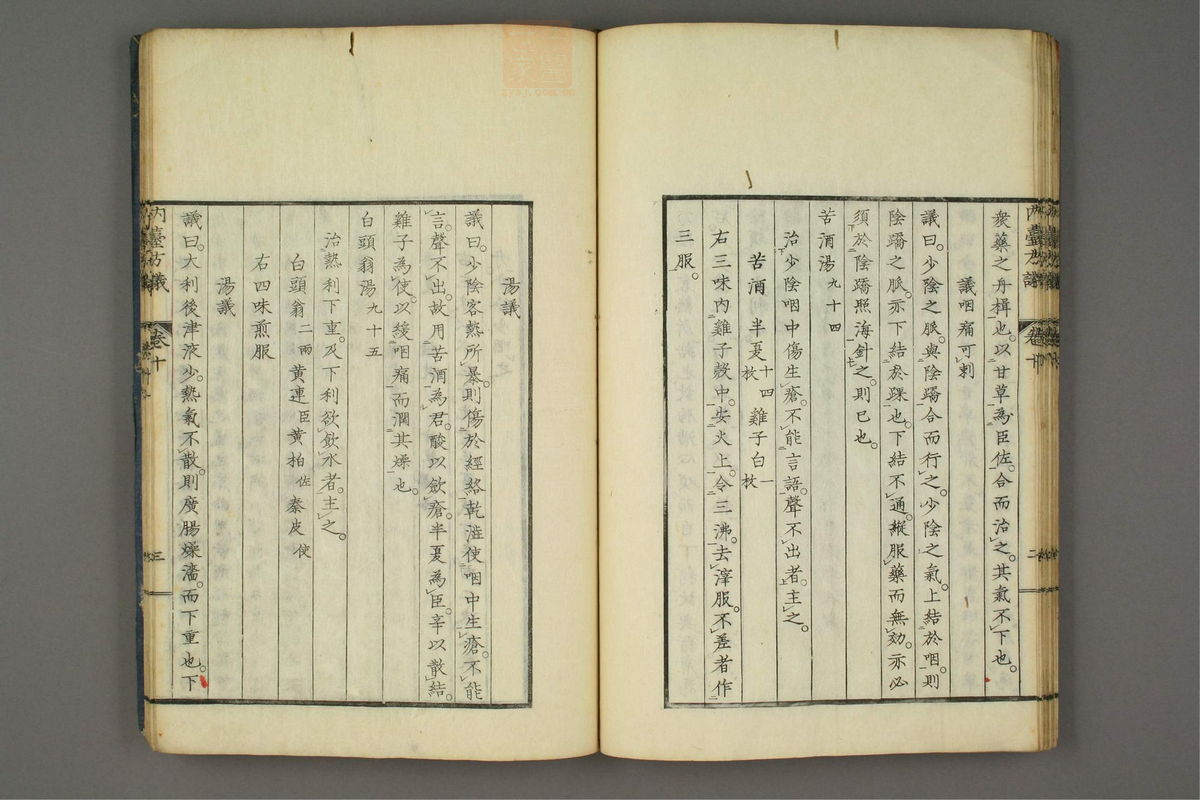 衆藥之舟楫也。以甘草為臣佐。合而治之。其氣不下也。
議咽痛可刺
議曰。少陰之脈。與陰蹻合而行之。少陰之氣。上結於咽。則
陰蹻之脈。亦下結於踝也。下結不通。縱服藥而無効。亦必
須於陰蹻照海針之。則已也。
苦酒湯九十四
治少陰咽中傷生瘡。不能言語。聲不出者。主之。
苦酒 半夏十四枚 雞子白一枚
右三味內雞子殼中。安火上。令三沸。去滓服。不差者作
三服。
湯議
議曰。少陰客熱所暴。則傷於經絡乾澁使咽中生瘡。不能
言。聲不出。故用苦酒為君。酸以歛瘡。半夏為臣。辛以散結。
雞子為使。以緩咽痛而潤其燥也。
白頭翁湯九十五
治熱利下重。及下利欲飲水者。主之。
白頭翁二兩 黃連臣 黃栢佐 秦皮使
右四味煎服
湯議
議曰。大利後津液少。熱氣不散。則廣腸燥濇。而下重也。下
內臺方議 卷十 三